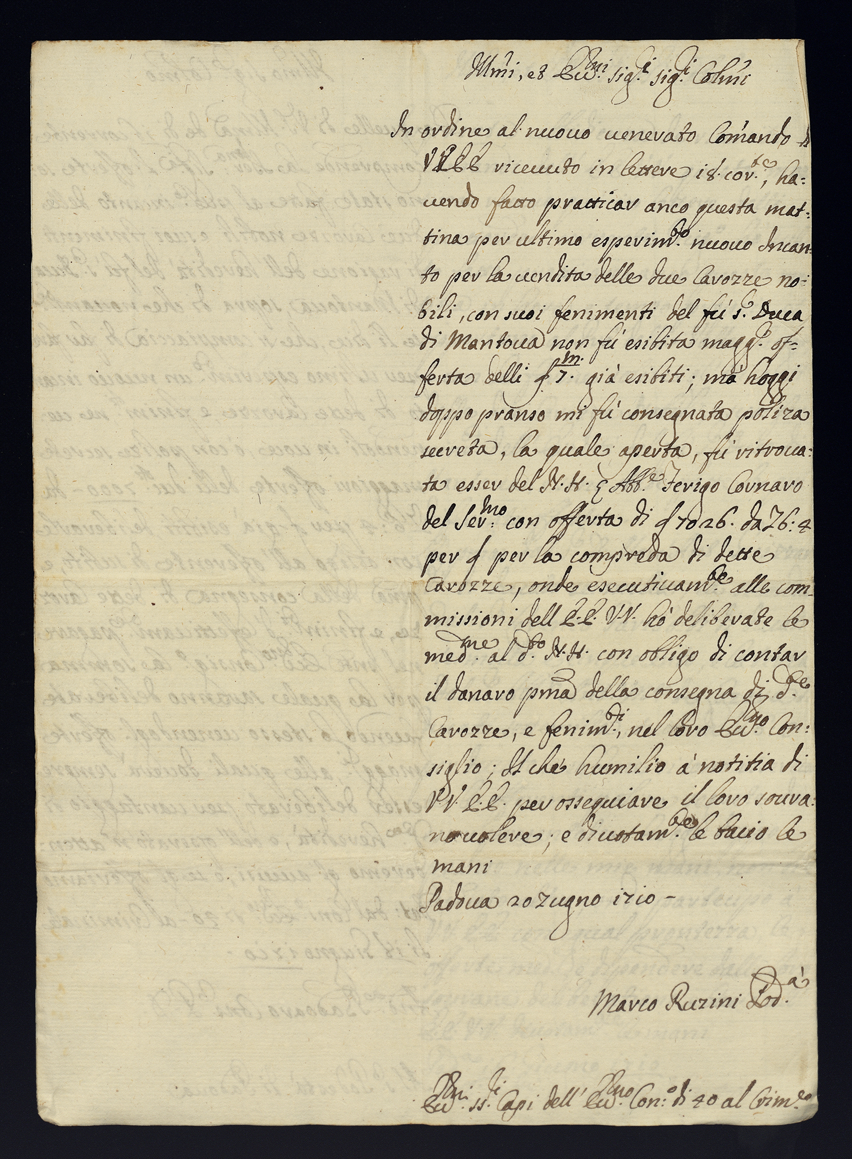 Ill.mi, et Ecc.mi Sig.ri Sig.ri Col.mi
In ordine al nuovo venerato Comãndo di
VV.EE ricevuto in lettere 18. cor.te, ha=
vendo fatto pratticar anco questa mat=
tina per ultimo esperim.to nuovo Incan=
to per la vendita delle due Carozze no=
bili, con suoi fenimenti del fù s.r Duca
di Mantova non fù esibita magg.r of=
ferta delli 7.m già esibiti; mà hoggi
doppo pranso mi fù consegnata poliza
secreta, la quale aperta, fù ritrova=
ta esser del N.H. Abb.e Ferigo Cornaro
del Ser.mo con offerta di 7026. da 6:4
per per la compreda di dette
Carozze, onde esecutivam.te alle com=
missioni dell E.E. V.V. hò deliberate le
med.me al d.to N.H. con obligo di contar
il danaro pma della consegna di d.te
Carozze, e fenim.ti, nel loro Ecc.mo Con=
siglio; Il che humilio à notitia di
VV. E.E. per ossequiare il loro sovra=
no volere; e divotam.te le bacio le
mani
Padova 20 Zugno 1710 -
Marco Ruzini Pod.à
Ecc.mi ss.ri Capi dell' Ecc.mo Con.o di 40 al Crim.le